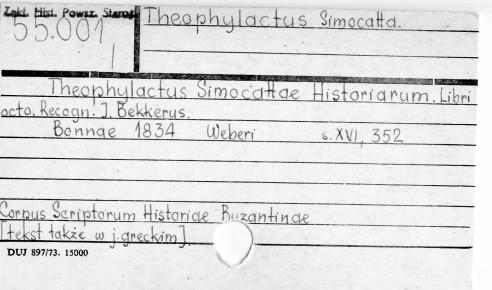 Zakł. Hist. Powsz. Staroż.
55.001
Theophylactus Simocatta.
Theophylactus Simocattae Historiarum. Libri
octo. Recogn. I. Bekkerus.
Bonnae 1834 Weberi s. XVI, 352
Corpus Scriptorum Historiae Byzantinae
[tekst także w j. greckim].
DUJ 897/73. 15000